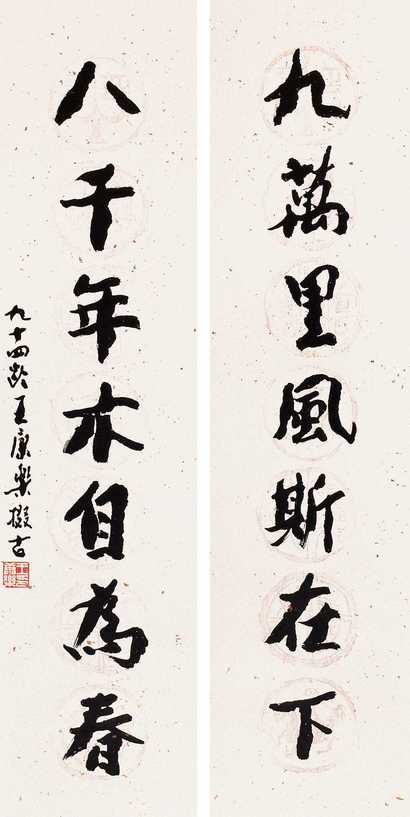 九萬里風斯在下
八千年木自為春
九十四齡王康樂掇古